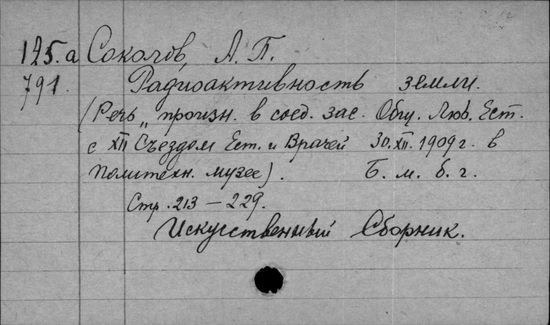 125.а Соколов, А. П.
791. Радиоактивность земли.
(Речь, произн. в соед. зас. Общ. Люб. Ест.
с XII Съездом Ест. и Врачей 30.XII.1909 г. в
Политехн. музее). Б. м. б. г.
Стр. 213 – 229.
Искусственный Сборник.